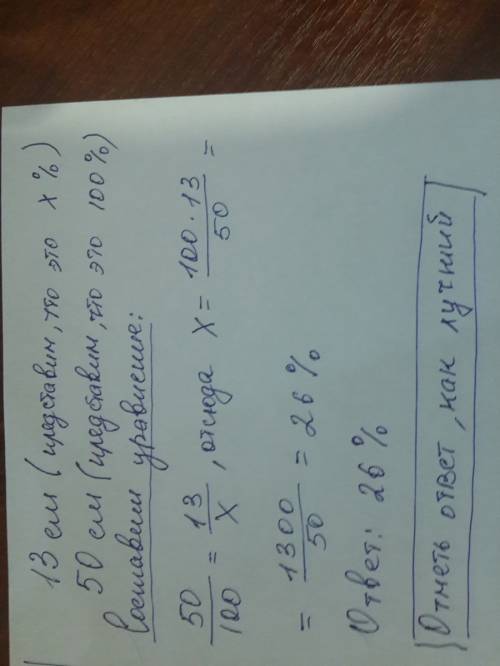 13 см (представим, что это x %)
50 см (представим, что это 100%)
Составим уравнение:
50/100 = 13/x, отсюда x = 100·13/50 =
= 1300/50 = 26%
Ответ: 26%
Отметь ответ, как лучший